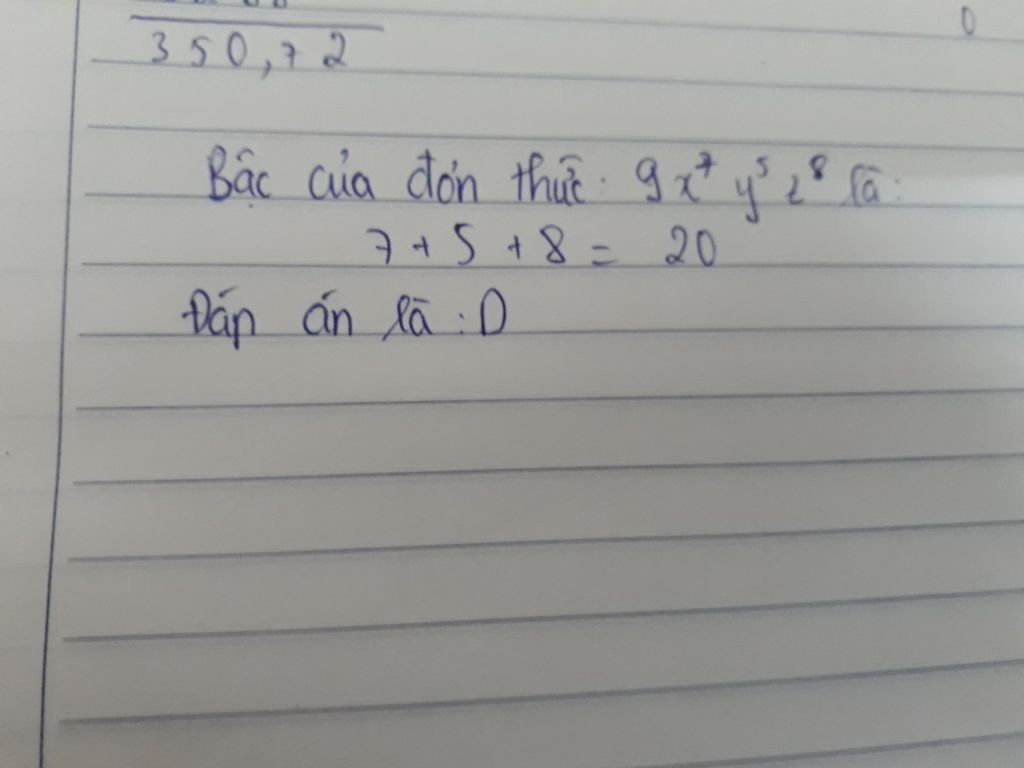 0
350,72
Bậc của đơn thức: 9x⁷y⁵z⁸ là:
7 + 5 + 8 = 20
Đáp án là: D